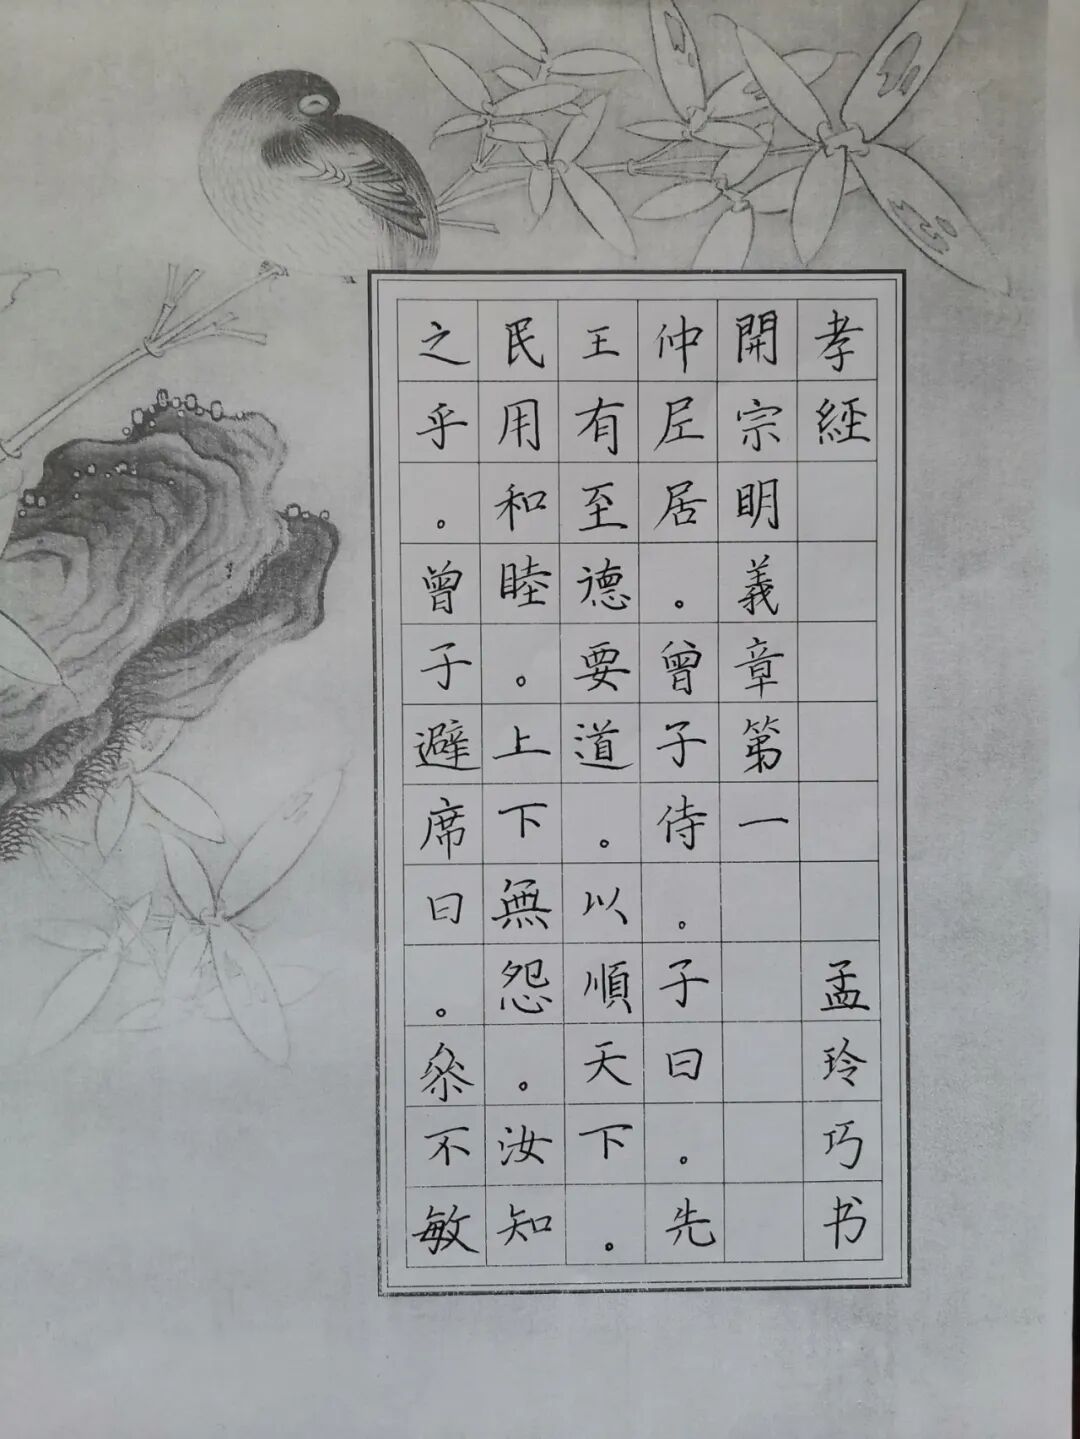 孝經 孟玲巧书
開宗明義章第一
仲尼居。曾子侍。子曰。先
王有至德要道。以順天下。
民用和睦。上下無怨。汝知
之乎。曾子避席曰。參不敏